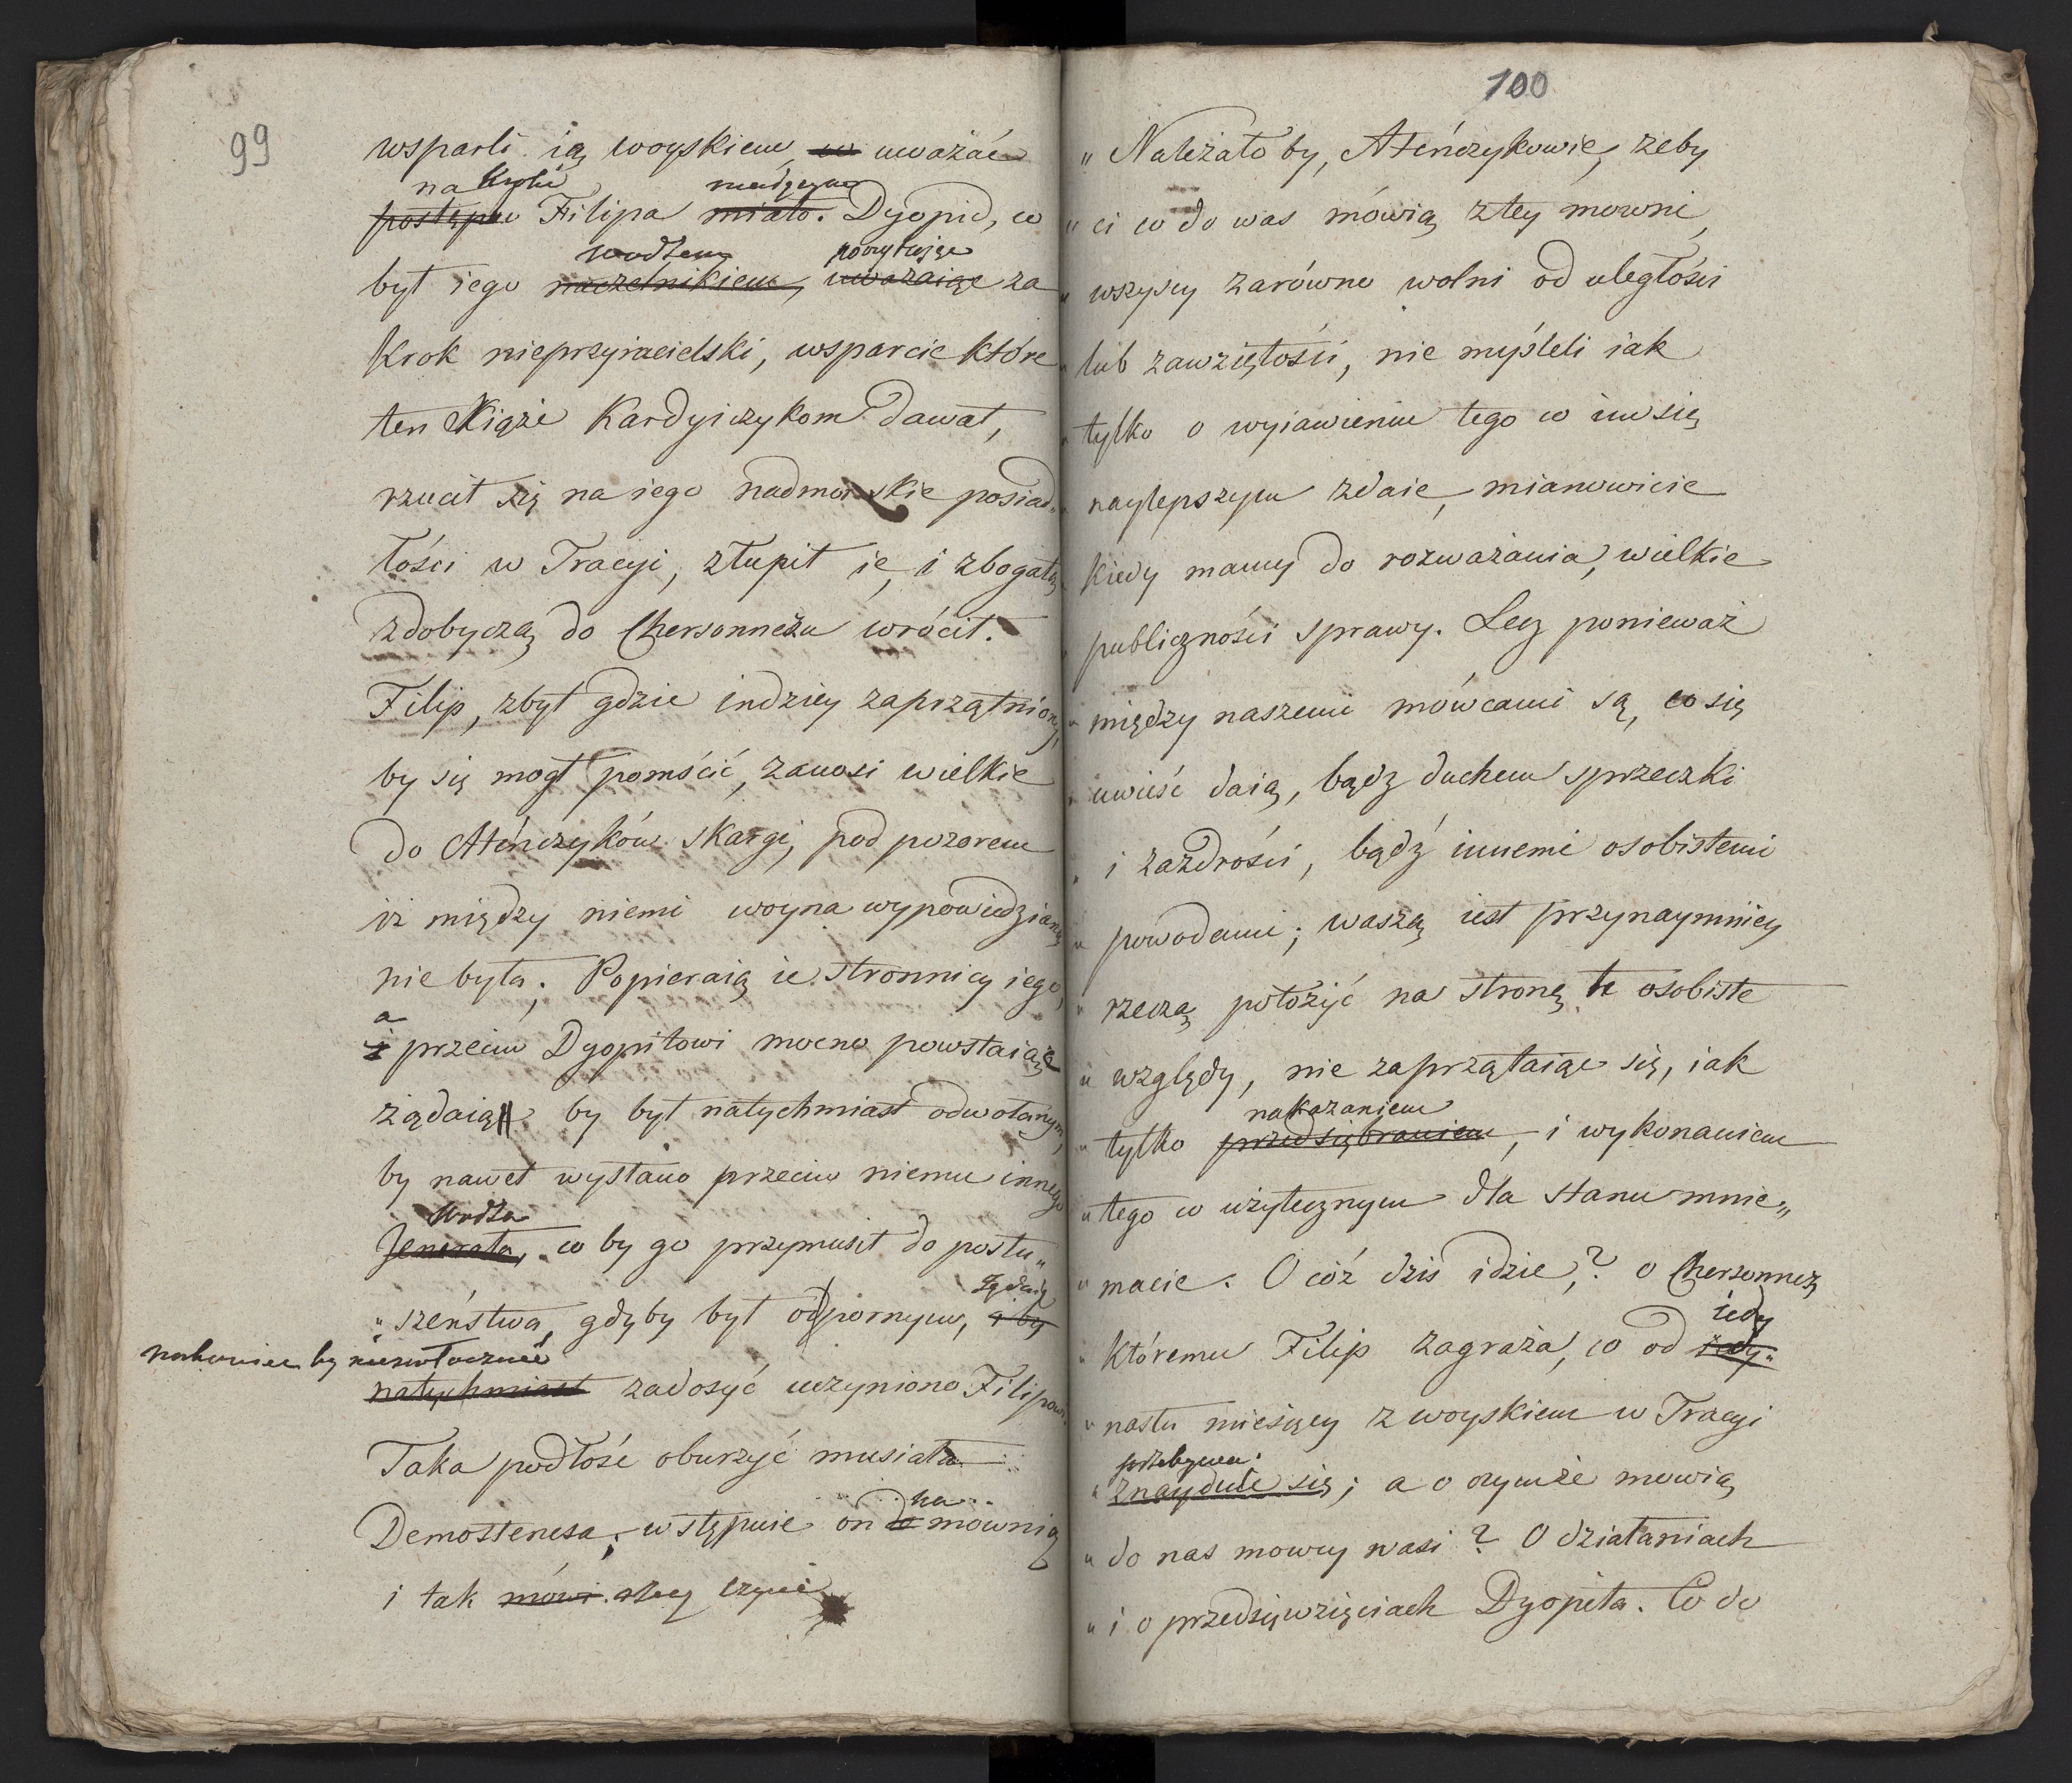 99
wsparli ią woyskiem, w uważać
na kroki
postępu Filipa miało. Dyopid, co
wodzem poczytuiąc
był iego naczelnikiem, uważaiąc za
krok nieprzyiacielski, wsparcie które
ten Xiąże Kardyiczykom dawał,
rzucił się na iego nadmorskie posiad„
łości w Tracyi, złupił ie, i z bogatą
zdobyczą do Chersonnezu wrócił.
Filip, zbyt gdzie indziey zaprzątniony,
by się mogł pomścić, zanosi wielkie
do Ateńczyków skargi, pod pozorem
iż między niemi woyna wypowiedzianą
nie była. Popieraią ie stronnicy iego,
a
i przeciw Dyopitowi mocno powstaiąc
żądaią by był natychmiast odwołanym,
by nawet wysłano przeciw niemu innego
Wodza
Jenerała, co by go przymusił do posłu„
żądaią
„szeństwa, gdyby był odpornym, i by
nakoniec by niezwłocznie
natychmiast zadosyć uczyniono Filipowi.
Taka podłość oburzyć musiała
na
Demostenesa; wstępuie on do mownią
i tak mówi rzecz czyni
100
„ Należało by, Ateńczykowie, żeby
„ ci co do was mówią z tey mowni,
„ wszyscy zarówno wolni od uległości
„ lub zawziętości, nie myśleli iak
„ tylko o wyiawieniu tego co im się
„ naylepszym zdaie, mianowicie
„ kiedy mamy do rozważania, wielkie
„ publiczności sprawy. Lecz ponieważ
„ między naszemi mówcami są, co się
„ uwieść daią, bądź duchem sprzeczki
„ i zazdrości, bądź innemi osobistemi
„ powodami; waszą iest przynaymniey
„ rzeczą położyć na stronę te osobiste
„ względy, nie zaprzątaiąc się, iak
nakazaniem
„ tylko przedsiębraniem, i wykonaniem
„ tego co użytecznym dla stanu mnie„
„ macie. O cóż dziś idzie? o Chersonnez,
iedy
„ któremu Filip zagraża, co od iedy„
„ nastu miesięcy z woyskiem w Tracyi
przebywa.
„ znayduie się; a o czymże mowią
„ do nas mowcy nasi? O działaniach
„ i o przedsięwzięciach Dyopita. Co do